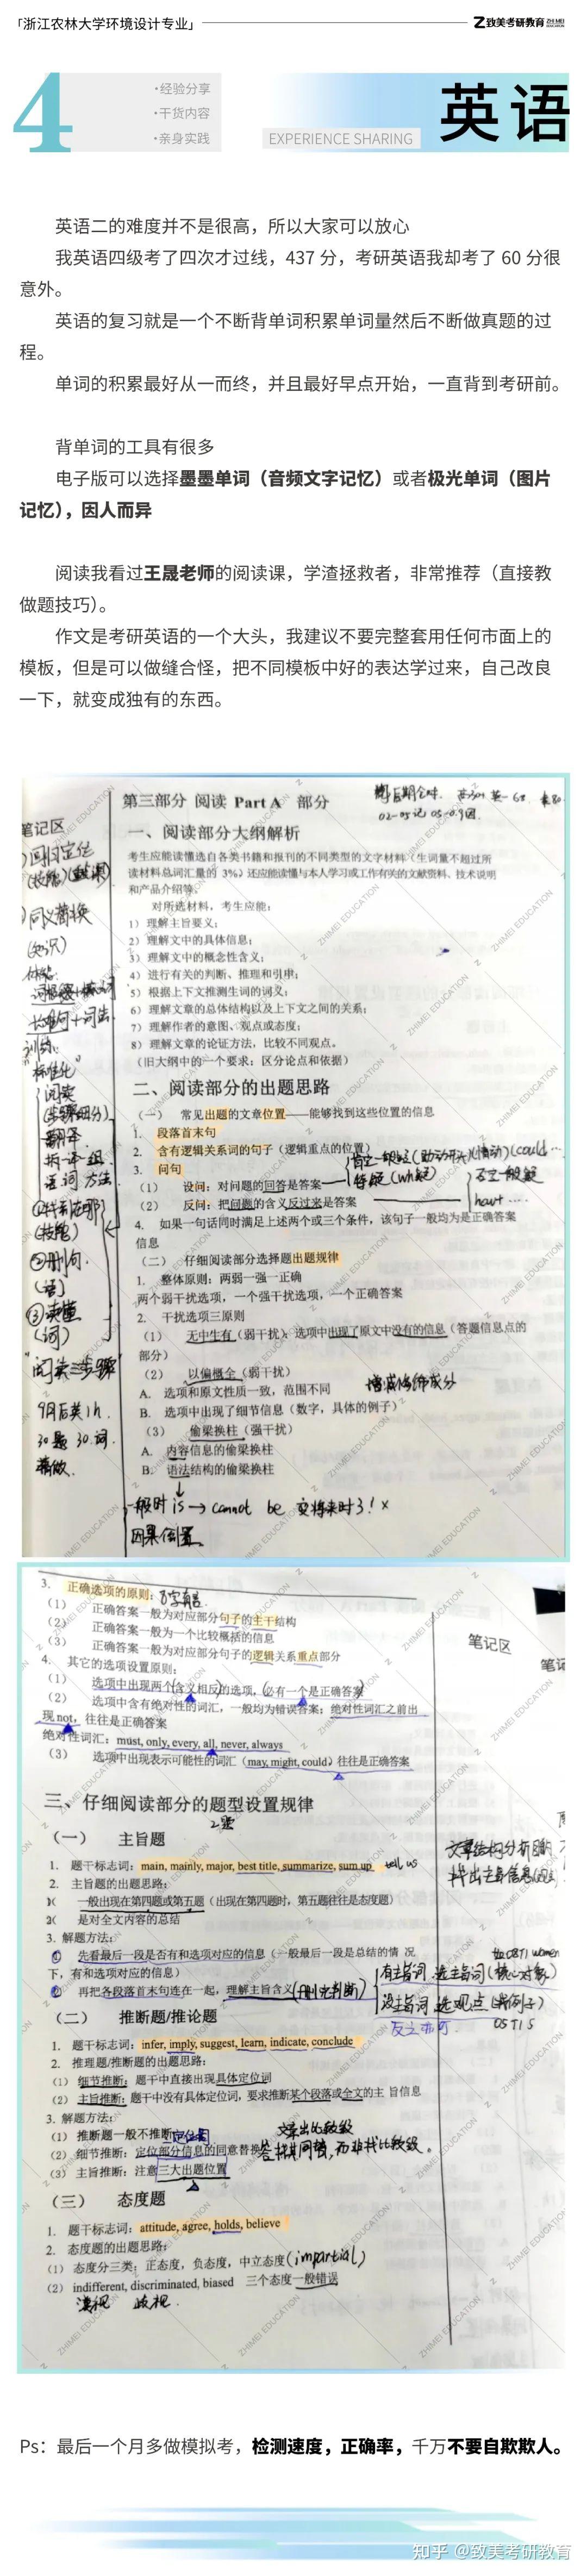 「浙江农林大学环境设计专业」
致美考研教育
4
·经验分享
·干货内容
·亲身实践
EXPERIENCE SHARING
英语
英语二的难度并不是很高，所以大家可以放心
我英语四级考了四次才过线，437 分，考研英语我却考了 60 分很
意外。
英语的复习就是一个不断背单词积累单词量然后不断做真题的过
程。
单词的积累最好从一而终，并且最好早点开始，一直背到考研前。
背单词的工具有很多
电子版可以选择墨墨单词（音频文字记忆）或者极光单词（图片
记忆），因人而异
阅读我看过王晟老师的阅读课，学渣拯救者，非常推荐（直接教
做题技巧）。
作文是考研英语的一个大头，我建议不要完整套用任何市面上的
模板，但是可以做缝合怪，把不同模板中好的表达学过来，自己改良
一下，就变成独有的东西。
笔记区
第三部分 阅读 Part A 部分
一、阅读部分大纲解析
考生应能读懂选自各类书籍和报刊的不同类型的文字材料（生词量不超过所
读材料总词汇量的 3%）还应能读懂与本人学习或工作有关的文献资料、技术说明
和产品介绍等。
对所选材料，考生应能：
1）理解主旨要义；
2）理解文中的具体信息；
3）理解文中的概念性含义；
4）进行有关的判断、推理和引申；
5）根据上下文推测生词的词义；
6）理解文章的总体结构以及上下文之间的关系；
7）理解作者的意图、观点或态度；
8）理解文章的论证方法，比较不同观点。
（旧大纲中的一个要求：区分论点和依据）
二、阅读部分的出题思路
（一） 常见出题的文章位置——能够找到这些位置的信息
1. 段落首末句
2. 含有逻辑关系词的句子（逻辑重点的位置）
3. 问句
（1） 设问：对问题的回答是答案
（2） 反问：把问题的含义反过来是答案
4. 如果一句话同时满足上述两个或三个条件，该句子一般均为是正确答案
信息
（二） 仔细阅读部分选择题出题规律
1. 整体原则：两弱一强一正确
两个弱干扰选项，一个强干扰选项，一个正确答案
2. 干扰选项三原则
（1） 无中生有（弱干扰）：选项中出现了原文中没有的信息（答题信息点的
部分）
（2） 以偏概全（弱干扰）
增减修饰成分
A. 选项和原文性质一致，范围不同
B. 选项中出现了细节信息（数字，具体的例子）
（3） 偷梁换柱（强干扰）
A. 内容信息的偷梁换柱
B. 语法结构的偷梁换柱
一般时 is → cannot be 变将来时了！×
因果倒置。
3. 正确选项的原则：
（1） 正确答案一般为对应部分句子的主干结构
（2） 正确答案一般为一个比较概括的信息
（3） 正确答案一般为对应部分句子的逻辑关系重点部分
4. 其它的选项设置原则：
（1） 选项中出现两个（含义相反）的选项，（必有一个是正确答案）
（2） 选项中含有绝对性的词汇，一般均为错误答案；绝对性词汇之前出
现 not，往往是正确答案
绝对性词汇：must, only, every, all, never, always
（3） 选项中出现表示可能性的词汇（may, might, could）往往是正确答案
笔记区
三、仔细阅读部分的题型设置规律
（一） 主旨题
1. 题干标志词：main, mainly, major, best title, summarize, sum up tell us
2. 主旨题的出题思路：
一般出现在第四题或第五题（出现在第四题时，第五题往往是态度题）
是对全文内容的总结
3. 解题方法：
① 先看最后一段是否有和选项对应的信息（一般最后一段是总结的情 况
下，有和选项对应的信息）
② 再把各段落首末句连在一起，理解主旨含义
有主旨词 选主旨词（核心对象）
没主旨词 选观点
反之亦可
（二） 推断题/推论题
1. 题干标志词：infer, imply, suggest, learn, indicate, conclude
2. 推理题/推断题的出题思路：
（1）细节推断：题干中直接出现具体定位词
（2）主旨推断：题干中没有具体定位词，要求推断某个段落或全文的主 旨信息
3. 解题方法：
（1）推断题一般不推断
（2）细节推断：定位部分信息的同意替换
（3）主旨推断：注意三大出题位置
（三） 态度题
1. 题干标志词：attitude, agree, holds, believe
2. 态度题的出题思路：
（1）态度分三类：正态度，负态度，中立态度（impartial）
（2）indifferent, discriminated, biased 三个态度一般错误
漠视 歧视.
Ps：最后一个月多做模拟考，检测速度，正确率，千万不要自欺欺人。
知乎 @致美考研教育